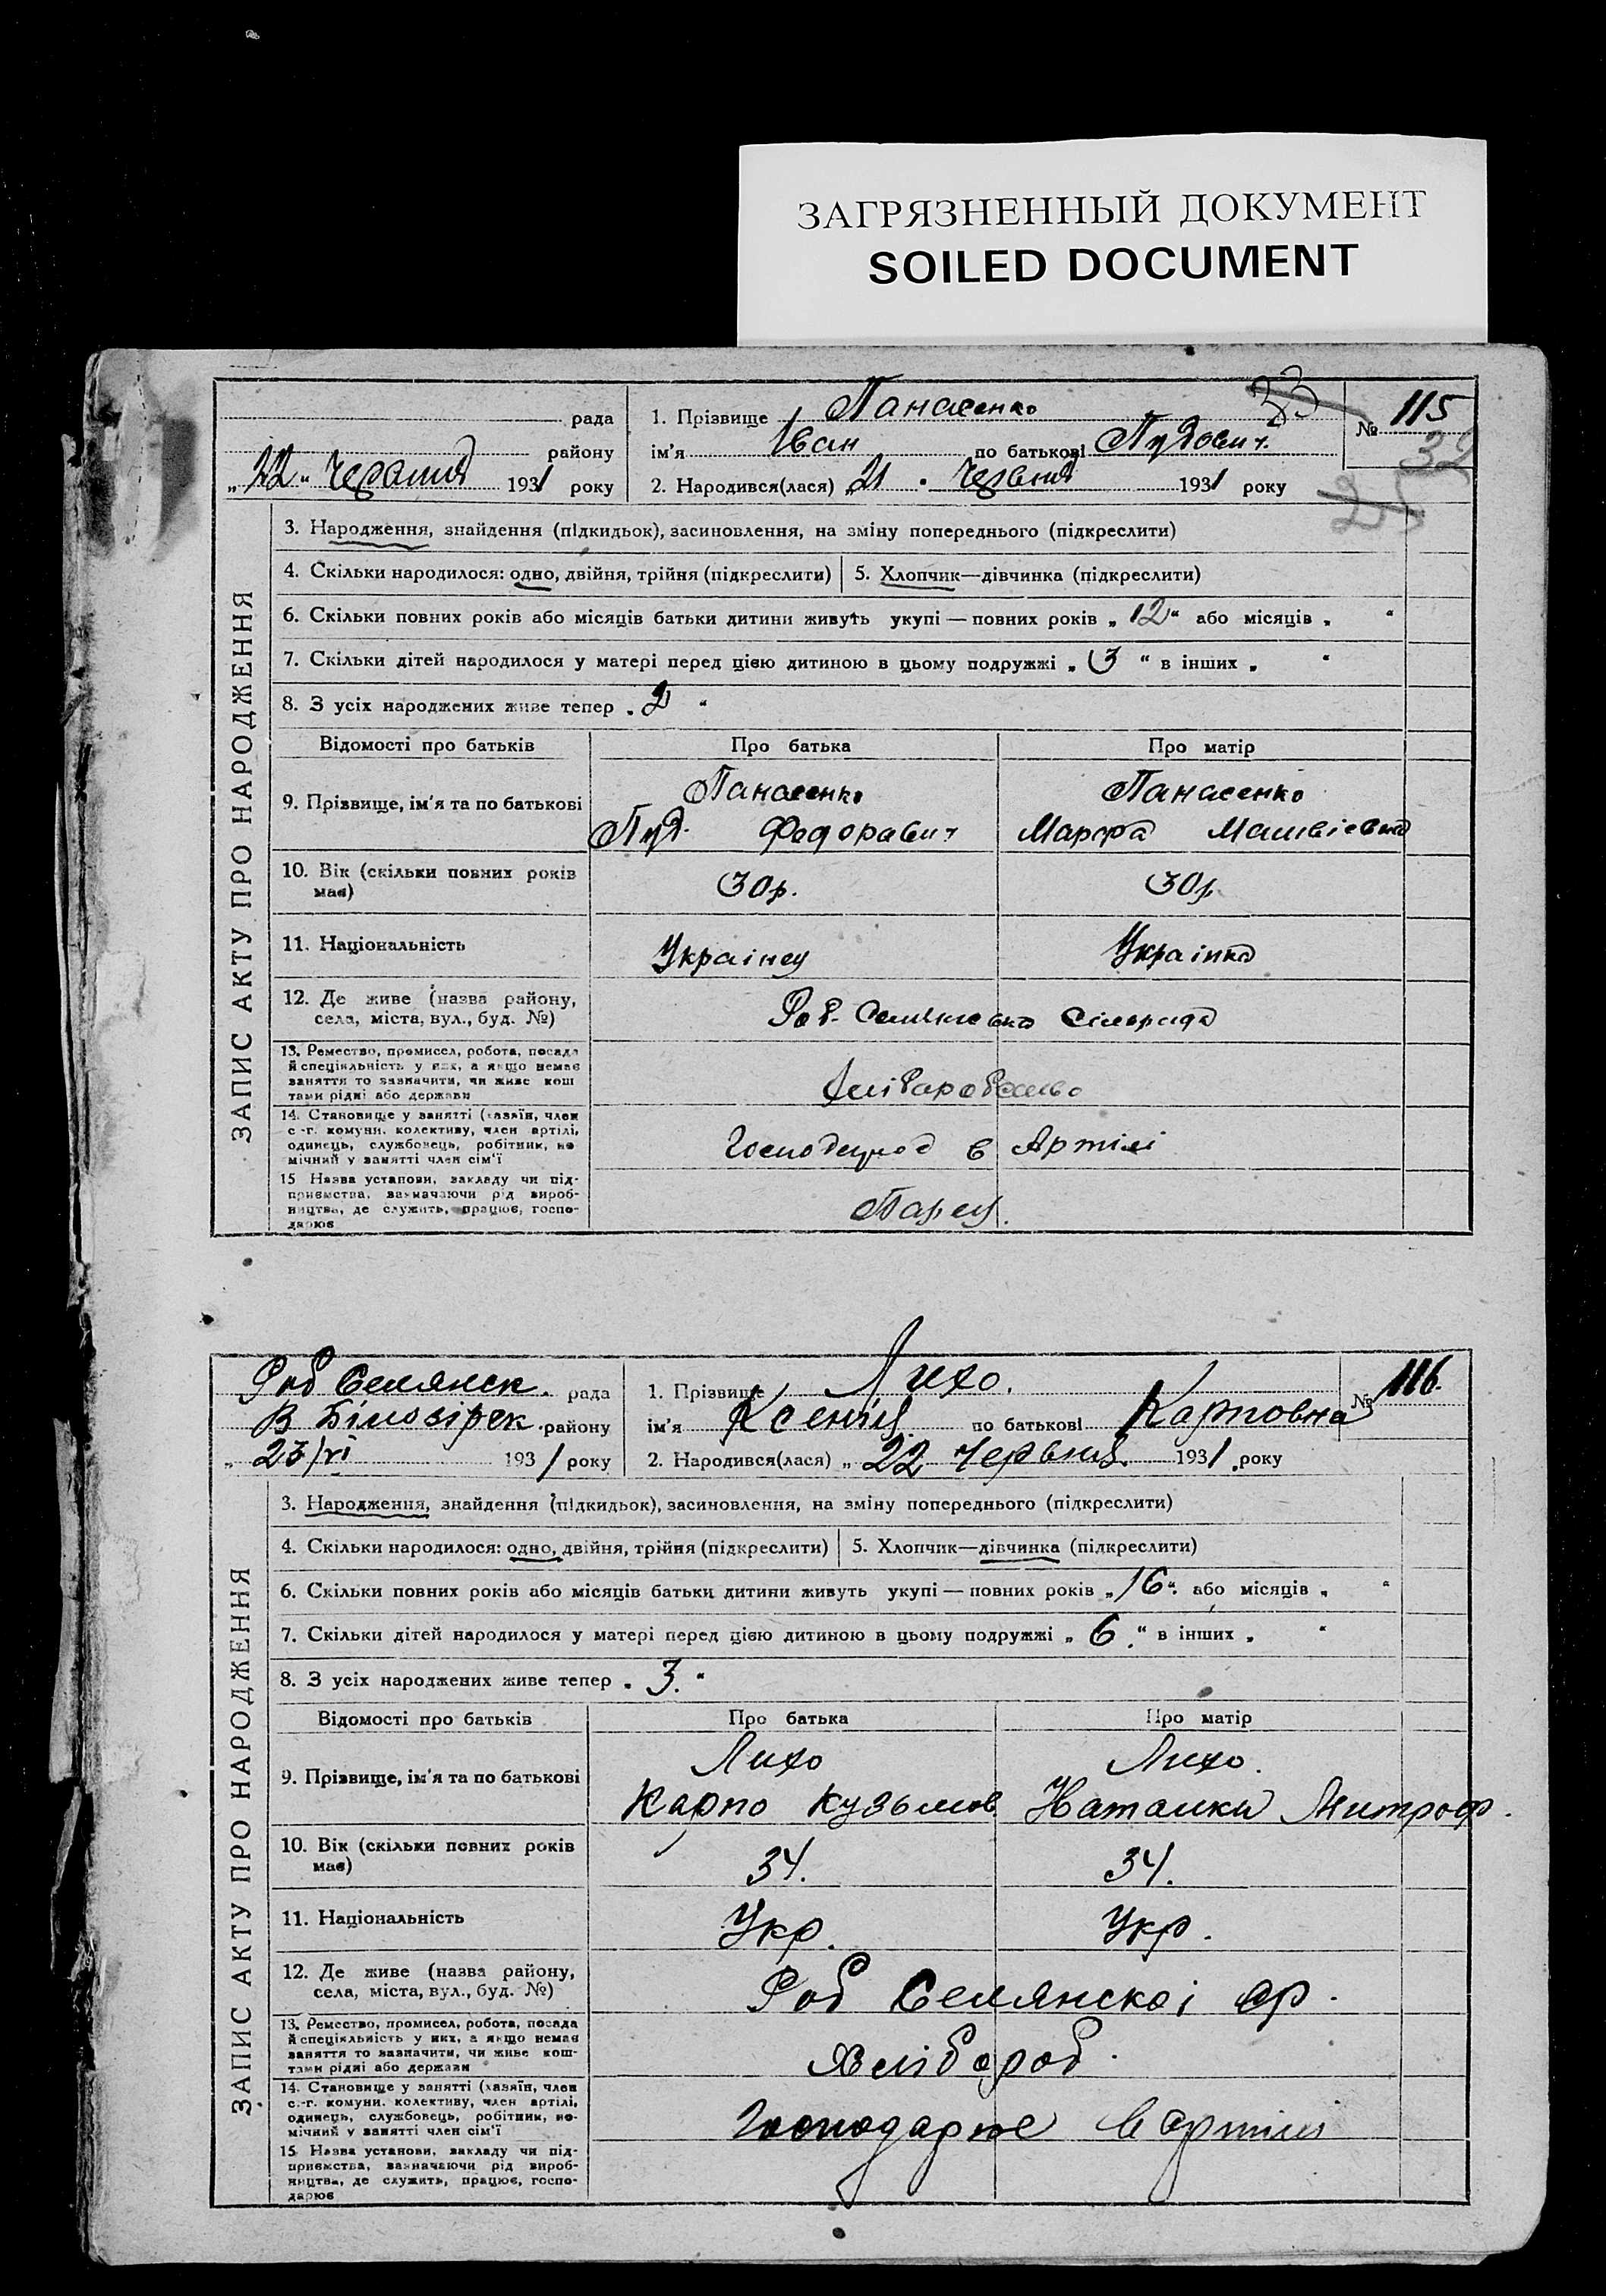 ЗАГРЯЗНЕННЫЙ ДОКУМЕНТ
SOILED DOCUMENT
ЗАПИС АКТУ ПРО НАРОДЖЕННЯ
рада
району
„22“ Червня 1931 року
1. Прізвище Панасенко
33
№ 115
32
25
ім'я Іван по батькові Пудович
2. Народився(лася) „21 Червня 1931 року
3. Народження, знайдення (підкидьок), засиновлення, на зміну попереднього (підкреслити)
4. Скільки народилося: одно, двійня, трійня (підкреслити) 5. Хлопчик—дівчинка (підкреслити)
6. Скільки повних років або місяців батьки дитини живуть укупі — повних років „12“ або місяців „ “
7. Скільки дітей народилося у матері перед цією дитиною в цьому подружжі „3“ в інших „ “
8. З усіх народжених живе тепер „2“
Відомості про батьків Про батька Про матір
9. Прізвище, ім'я та по батькові
Панасенко Панасенко
Пуд. Федоравич Марфа Матвієвна
10. Вік (скільки повних років має) 30р. 30р
11. Національність Українец Українка
12. Де живе (назва району, села, міста, вул., буд. №) Роб. Сельрада
13. Ремество, промисел, робота, посада
й спеціяльність у них, а якщо немає
заняття то зазначити, чи живе кош
тами рідні або держави
14. Становище у занятті (хазяїн, член
с-г. комуни, колективу, член артілі,
одинець, службовець, робітник, по
мічний у занятті член сім'ї
в Артілі
15 Назва установи, закладу чи під-
приємства, зазначаючи рід вироб-
ництва, де служить, працює, госпо-
дарює
ЗАПИС АКТУ ПРО НАРОДЖЕННЯ
Роб Селянск. рада
В Білозірск. району
„ 23/VI 1931 року
1. Прізвище Лихо.
№ 116.
ім'я Ксенія по батькові Карповна
2. Народився(лася) „ 22 Червня 1931 року
3. Народження, знайдення (підкидьок), засиновлення, на зміну попереднього (підкреслити)
4. Скільки народилося: одно, двійня, трійня (підкреслити) 5. Хлопчик—дівчинка (підкреслити)
6. Скільки повних років або місяців батьки дитини живуть укупі — повних років „16“ або місяців „ “
7. Скільки дітей народилося у матері перед цією дитиною в цьому подружжі „6“ в інших „ “
8. З усіх народжених живе тепер „3.“
Відомості про батьків Про батька Про матір
9. Прізвище, ім'я та по батькові
Лихо Лихо.
Карпо Кузьмов Наталка Митроф.
10. Вік (скільки повних років має) 34. 34.
11. Національність Укр. Укр.
12. Де живе (назва району, села, міста, вул., буд. №) Роб Селянскоі ср.
13. Ремество, промисел, робота, посада
й спеціяльність у них, а якщо немає
заняття то зазначити, чи живе кош-
тами рідні або держави
Хлібороб.
14. Становище у занятті (хазяїн, член
с.-г. комуни, колективу, член артілі,
одинець, службовець, робітник, по-
мічний у занятті член сім'ї
Господарює в артілі
15 Назва установи, закладу чи під-
приємства, зазначаючи рід вироб-
ництва, де служить, працює, госпо-
дарює